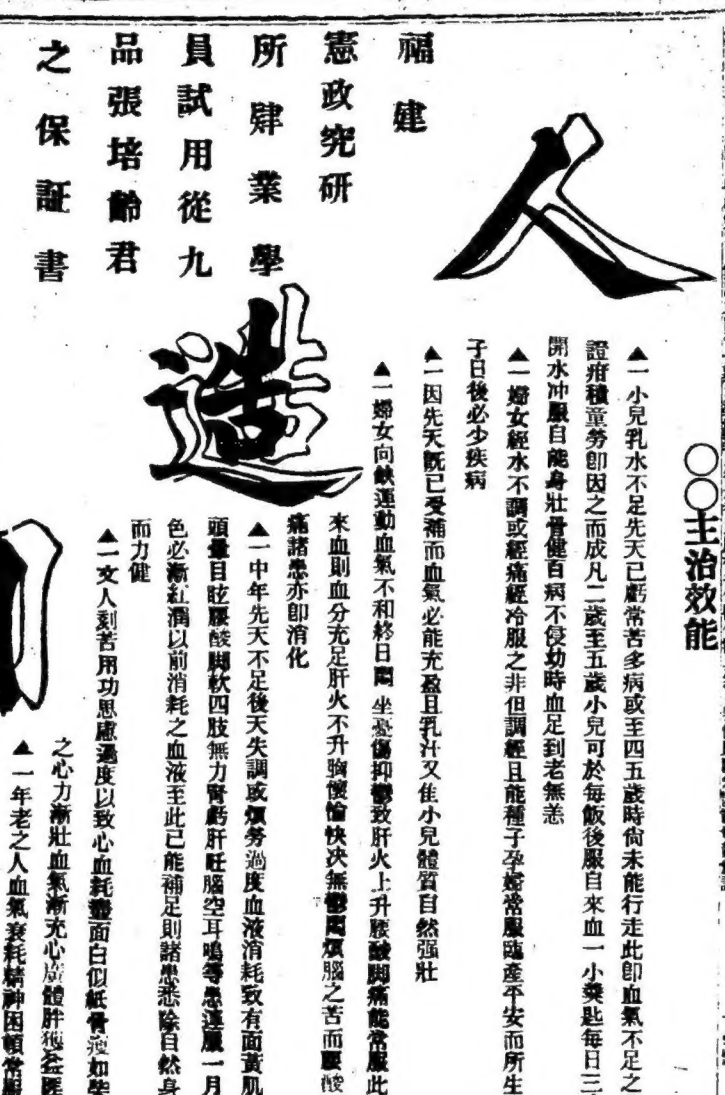 人
造
福建
憲政究研
所肄業學
員試用從九
品張培齡君
之保証書
○○主治效能
▲一小兒乳水不足先天已虧常苦多病或至四五歲時尙未能行走此卽血氣不足之
證疳積童勞卽因之而成凡二歲至五歲小兒可於每飯後服自來血一小羹匙每日三
開水冲服自能身壯骨健百病不侵幼時血足到老無恙
▲一婦女經水不調或經痛經冷服之非但調經且能種子孕婦常服臨產平安而所生
子日後必少疾病
▲一因先天旣已受補而血氣必能充盈且乳汁又佳小兒體質自然强壯
▲一婦女向缺運動血氣不和終日悶坐憂傷抑鬱致肝火上升腰酸脚痛能常服此
來血則血分充足肝火不升胸懷愉快決無鬱悶煩腦之苦而腰酸
痛諸患亦卽消化
▲一中年先天不足後天失調或煩勞過度血液消耗致有面黃肌
頭暈目眩腰酸脚軟四肢無力腎虧肝旺腦空耳鳴等患連服一月
色必漸紅潤以前消耗之血液至此已能補足則諸患悉除自然身
而力健
▲一文人刻苦用功思慮過度以致心血耗盡面白似紙骨瘦如柴
之心力漸壯血氣漸充心廣體胖獲益匪
▲一年老之人血氣衰耗精神困頓常服